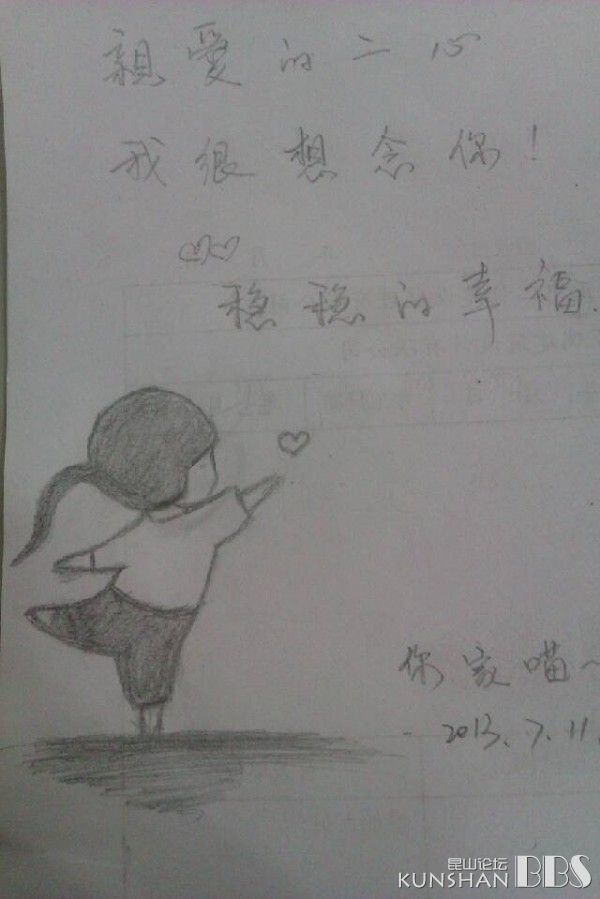 親愛的二心
我很想念你!
稳稳的幸福.
你家喵~
2013.7.11.
昆山论坛
KUNSHAN BBS